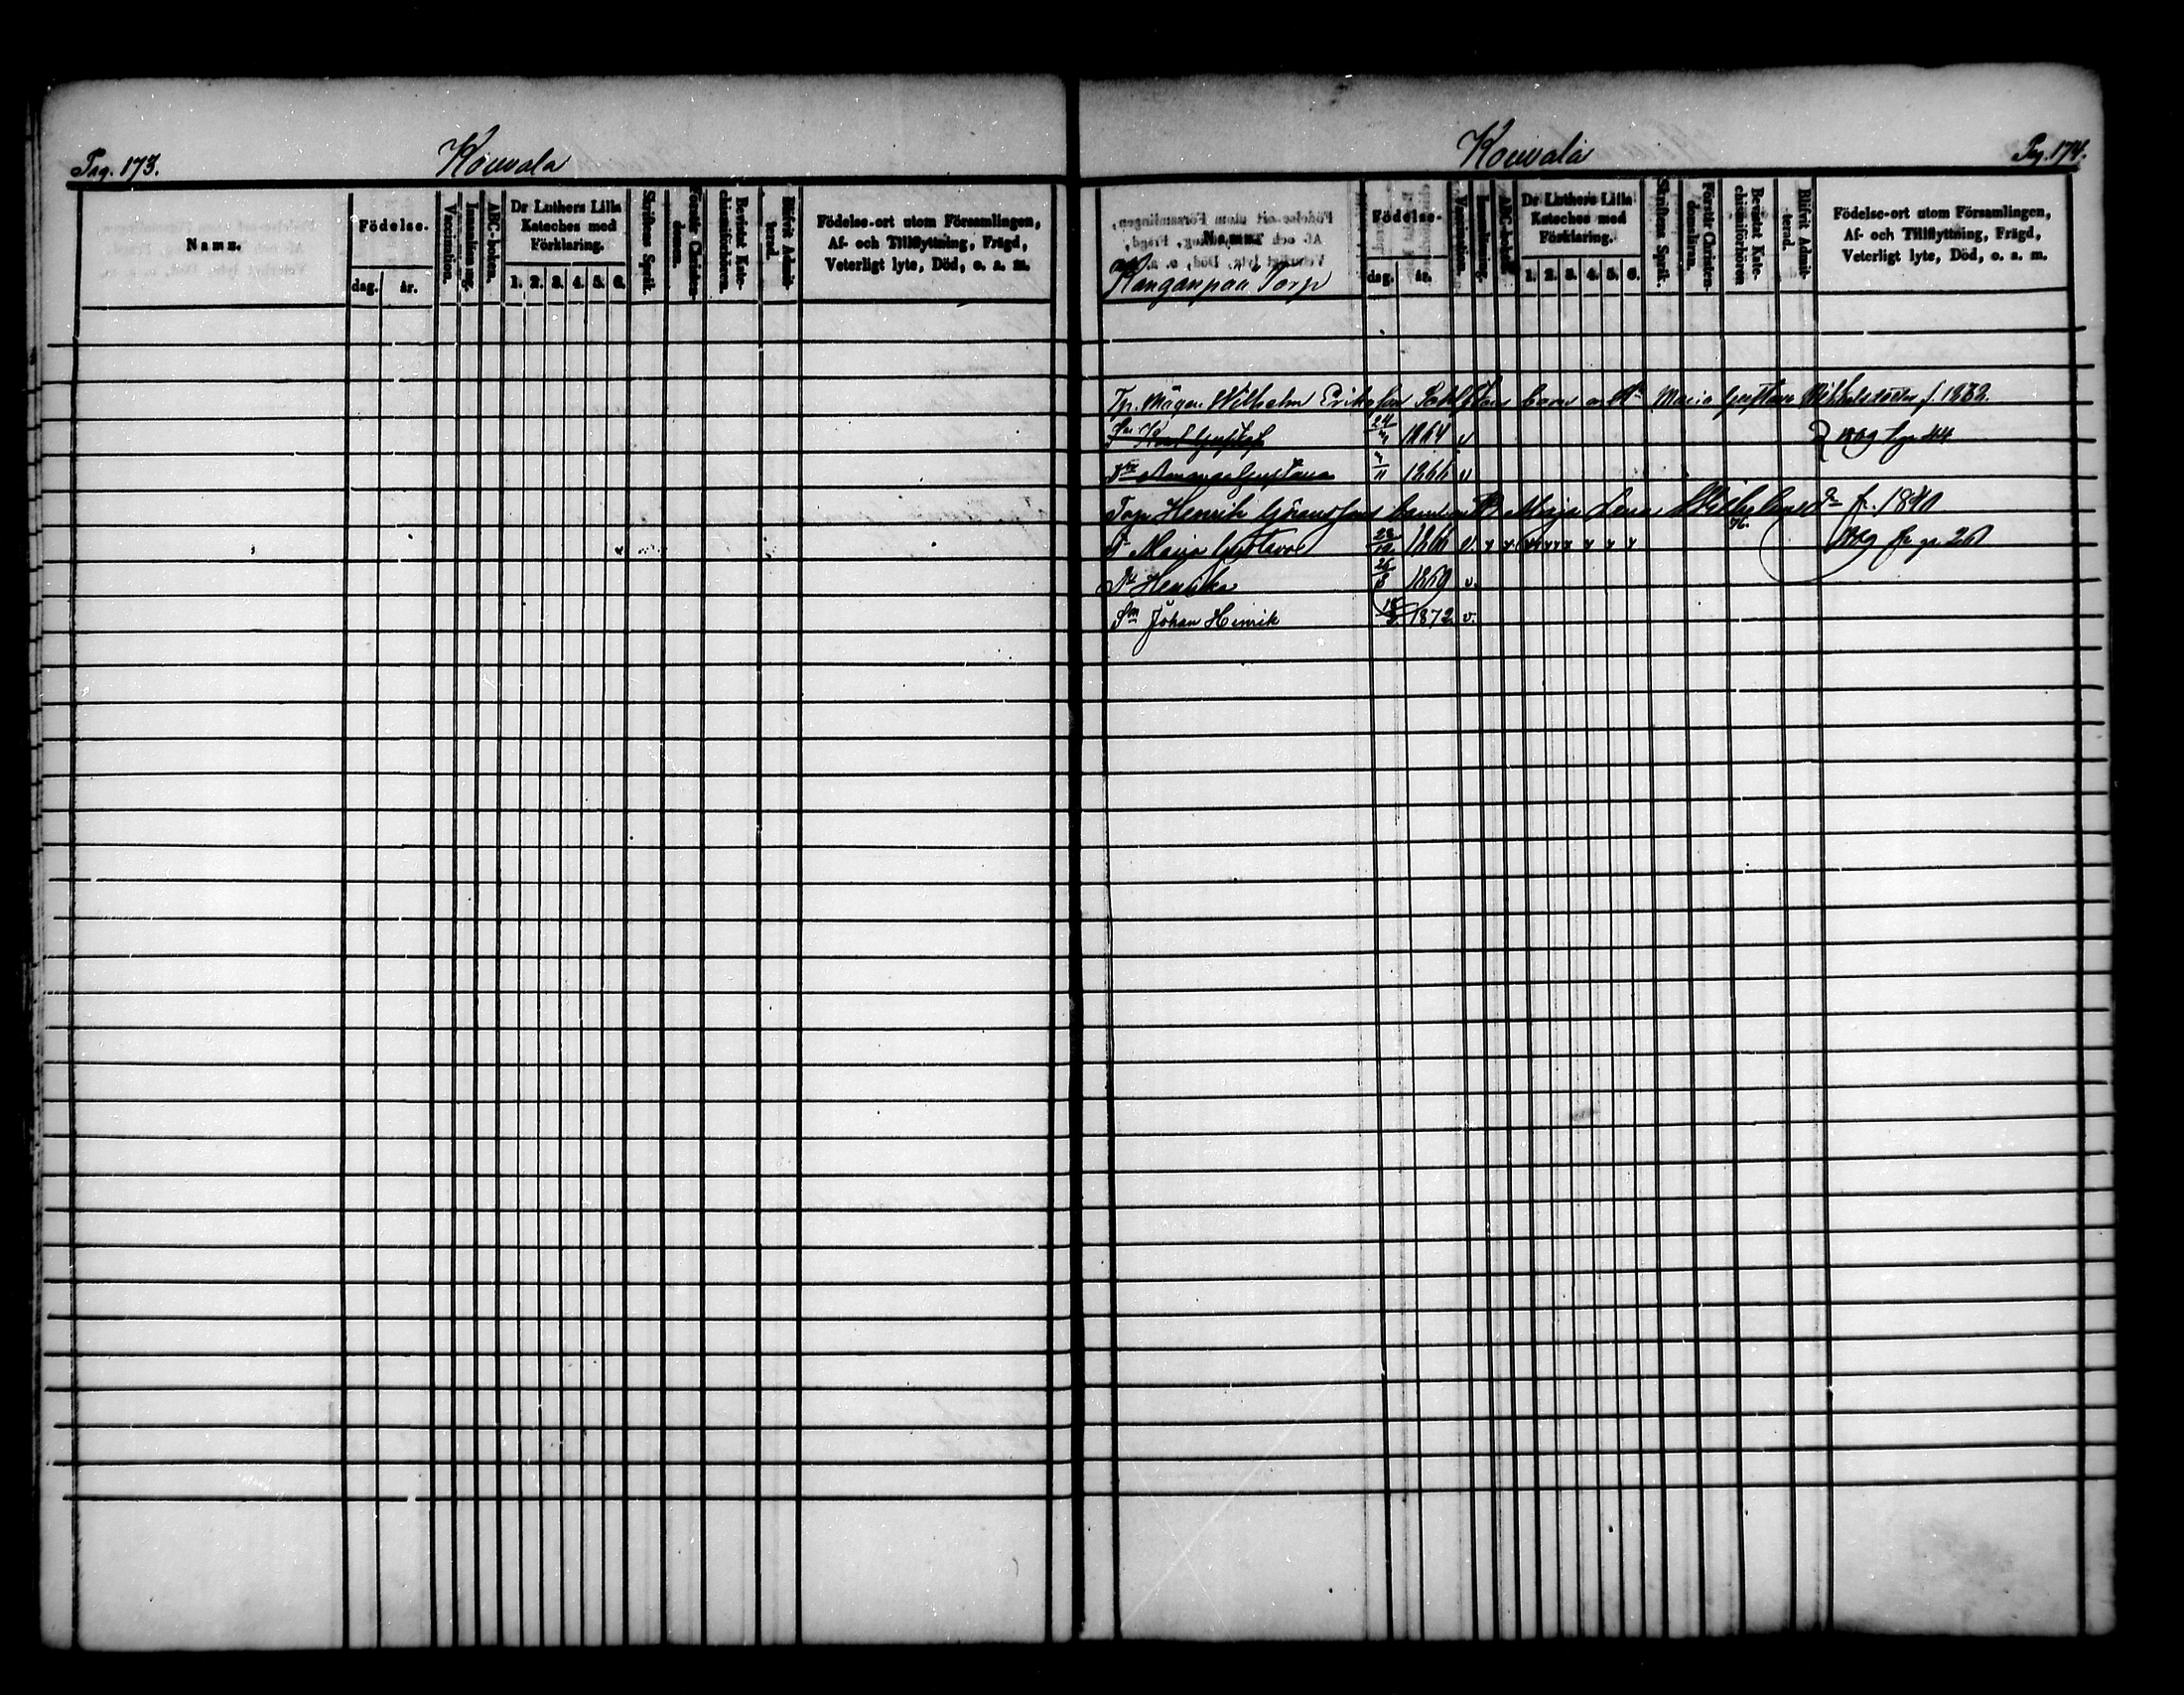 Pag. 173.
Kouvala
Namn.
Födelse-
dag. år.
Vaccination.
Innanläsning.
ABC-boken.
Dr Luthers Lilla Kateches med Förklaring.
1. 2. 3. 4. 5. 6.
Skriftens Språk.
Förstår Christendomen.
Bevistat Katechismiförhören.
Blifvit Admitterad.
Födelse-ort utom Församlingen,
Af- och Tillflyttning, Frägd,
Veterligt lyte, Död, o. a. m.
Kouvala
Pag. 174.
Namn.
Kanganpää Torp
Födelse-
dag. år.
Vaccination.
Innanläsning.
ABC-boken
Dr Luthers Lilla Kateches med Förklaring.
1. 2. 3. 4. 5. 6.
Skriftens Språk.
Förstår Christendomsläran.
Bevistat Katechismiförhören
Blifvit Admitterad.
Födelse-ort utom Församlingen,
Af- och Tillflyttning, Frägd,
Veterligt lyte, Död, o. a. m.
Tp. Mågen Wilhelm Eriksson barn Maria Gustava
Gustaf 24 1864 v
Amanda Gustava 11 1866 v
Torp. Henrik Göranssons barn Maja Lena f. 1840
Dr Maria Gustava 22/12 1866 v
Dr Henrika 26/8 1869 v.
Sn Johan Henrik 1872 v.